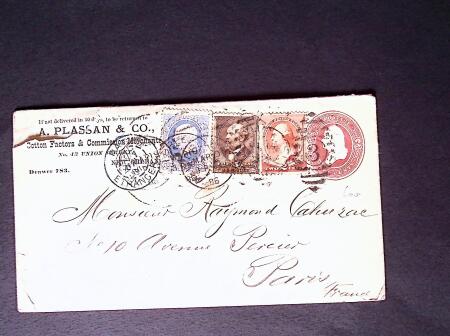 If not delivered in 10 days, to be returned to
A. PLASSAN & CO.,
Cotton Factors & Commission Merchants
No. 42 UNION
Drawer 783.
ETRANGER
Monsieur Raymond Cahuzac
No 10 Avenue Percier
Paris
France